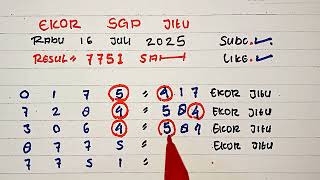 EKOR SGP JITU
RABU 16 JULI 2025 SUBC.
RESUL= 7751 SAH LIKE.
0 1 7 5 = 4 1 7 EKOR JITU
7 2 8 4 = 5 8 4 EKOR JITU
3 0 6 4 = 5 8 1 EKOR JITU
8 7 7 5 = EKOR JITU
7 7 5 1 =